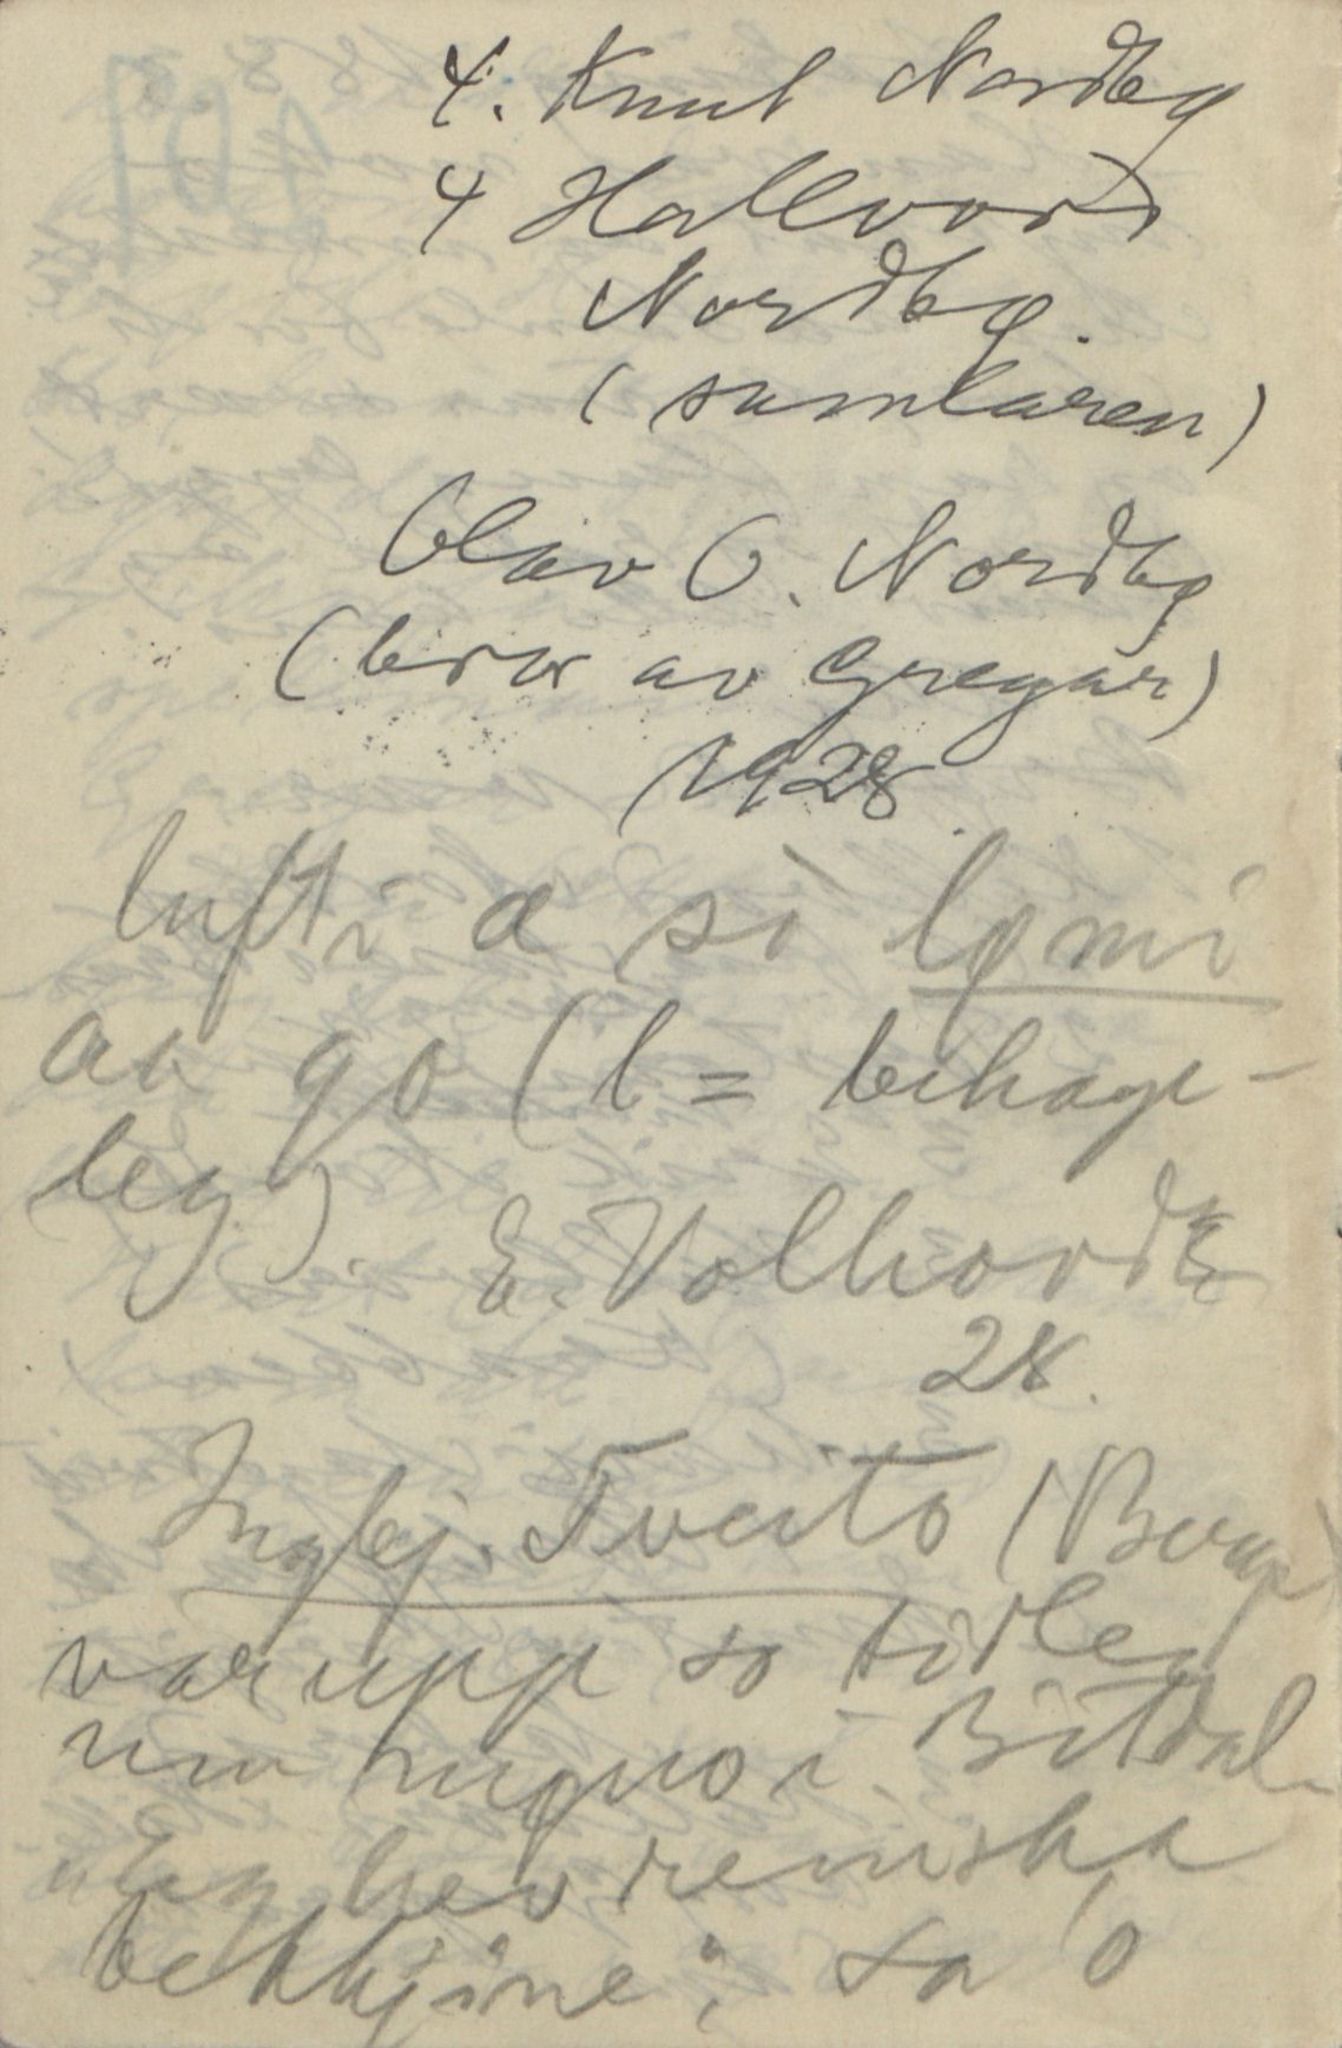 4. Knut Nordbø
4 Hallvord
Nordbø.
(samlaren)
Olav O. Nordbø
(bror av Gregar)
1928.
lufti æ så lømi
av go (l = behage-
leg). E. Vollvord
28.
Ingbj. Tveito (Berge)
var upp so tidleg
um mogno i Bitdal.
Eg hev remska
bekkjine, sa o